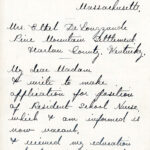 Massachusetts.
Mrs. Ethel De Long Zande
Pine Mountain Settlement
Harlan County, Kentucky.
My dear Madam
I write to make
application for position
of Resident School Nurse
which I am informed is
now vacant,
I received my education